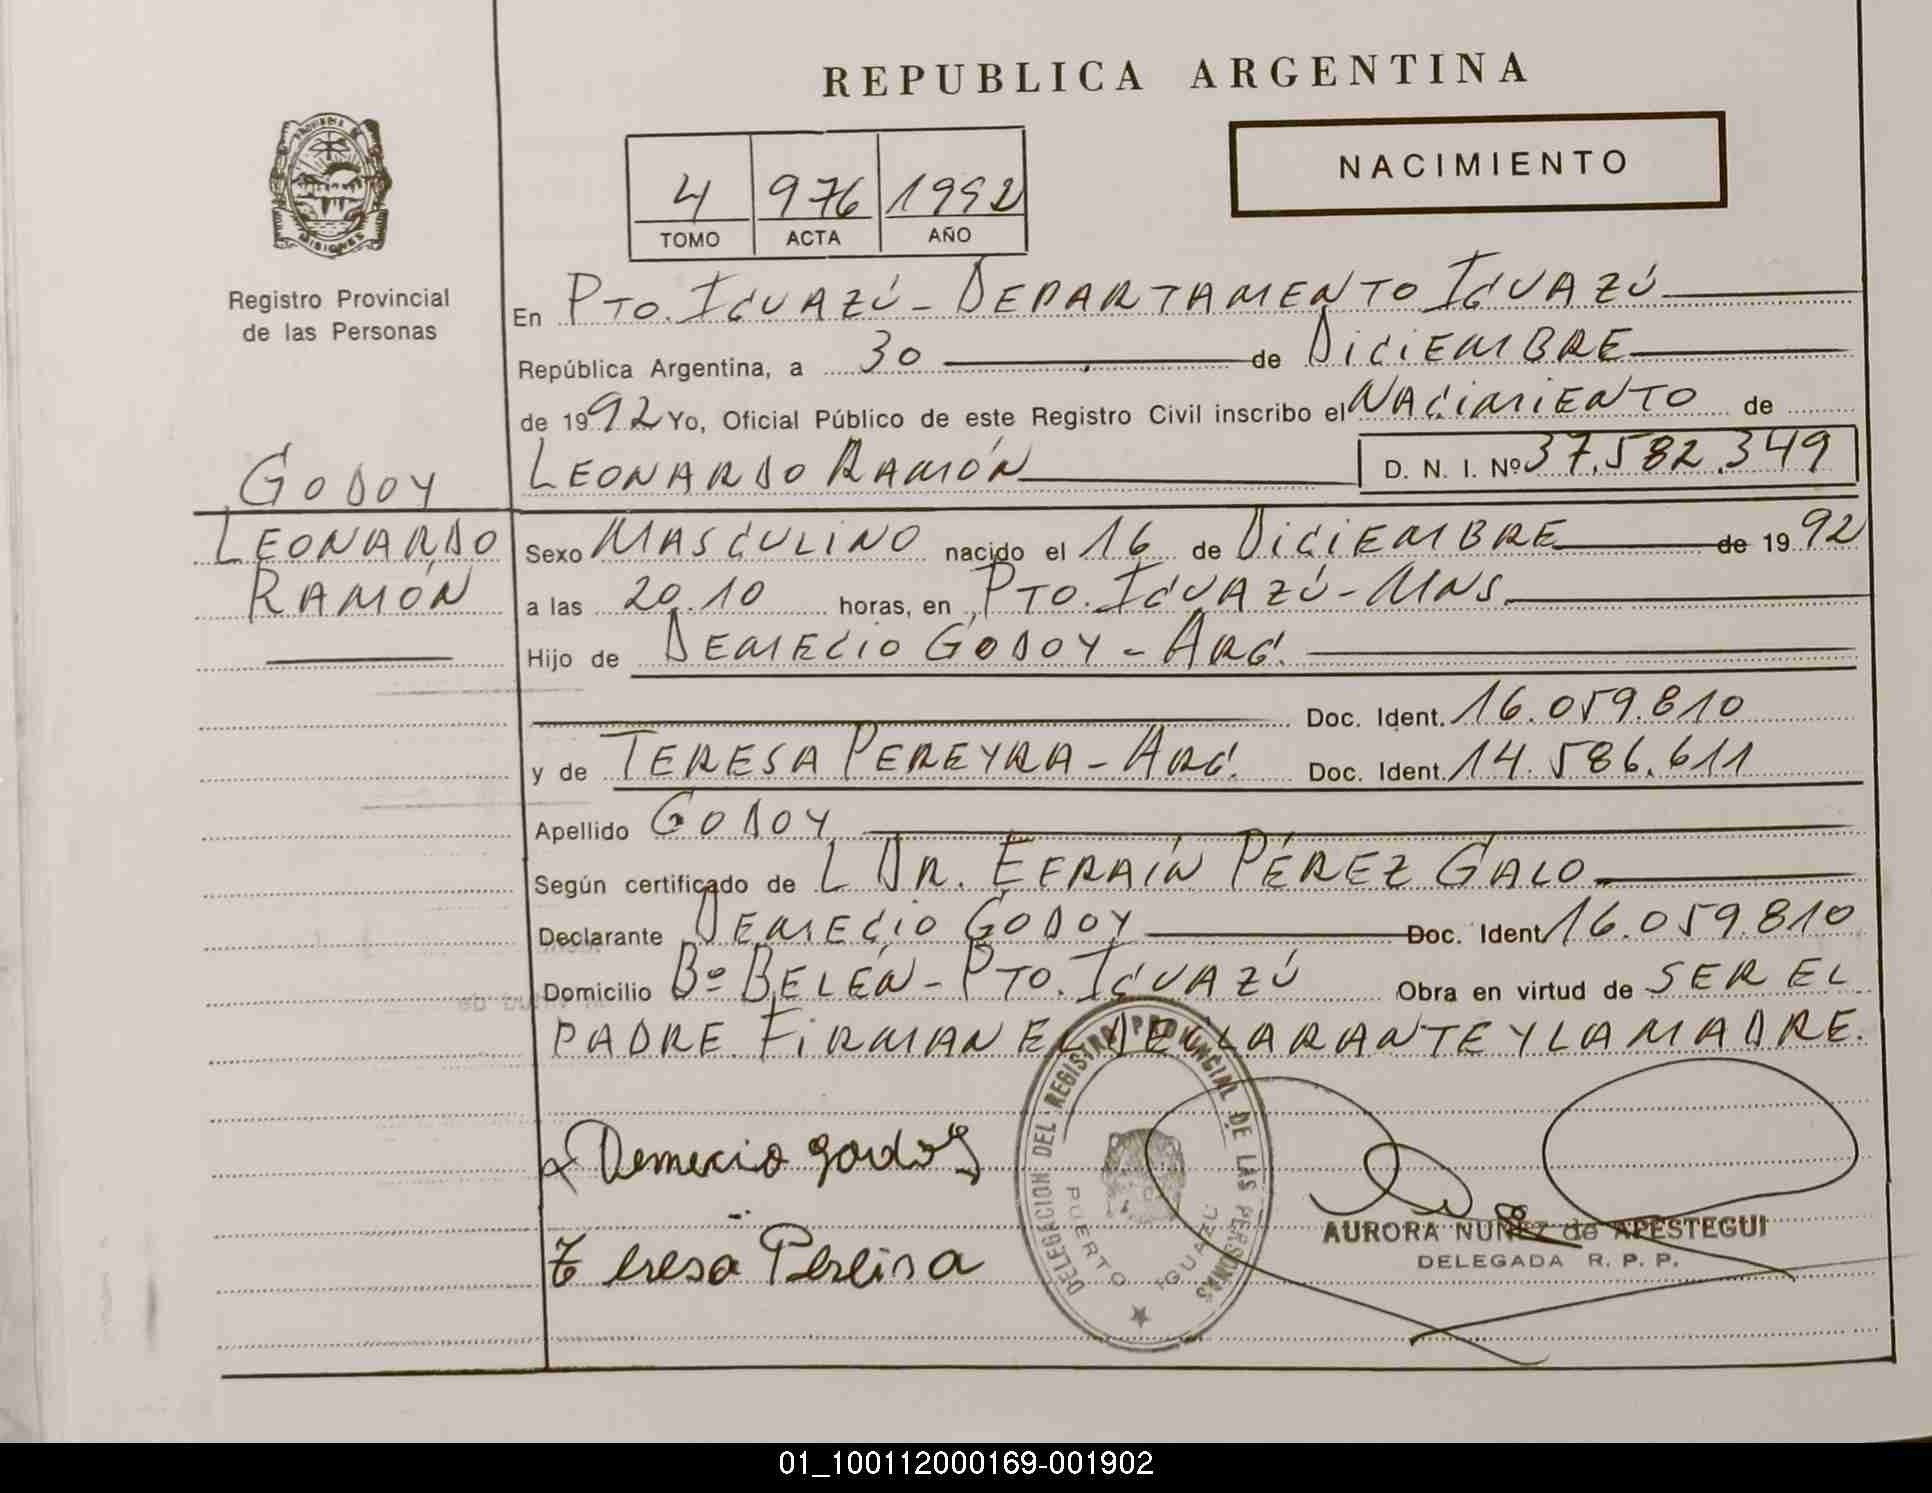 REPUBLICA ARGENTINA
PROVINCIA DE
MISIONES
Registro Provincial
de las Personas
4 976 1992
TOMO ACTA AÑO
NACIMIENTO
En PTO. IGUAZÚ - DEPARTAMENTO IGUAZÚ
República Argentina, a 30 de DICIEMBRE
de 1992 Yo, Oficial Público de este Registro Civil inscribo el NACIMIENTO de
LEONARDO RAMÓN D. N. I. Nº 37.582.349
GODOY
LEONARDO
RAMÓN
Sexo MASCULINO nacido el 16 de DICIEMBRE de 1992
a las 20.10 horas, en PTO. IGUAZÚ - MNS.
Hijo de DEMECIO GODOY - ARG.
Doc. Ident. 16.059.810
y de TERESA PEREYRA - ARG. Doc. Ident. 14.586.611
Apellido GODOY
Según certificado de L DR. EFRAÍN PÉREZ GALO
Declarante DEMECIO GODOY Doc. Ident. 16.059.810
Domicilio Bº BELÉN - PTO. IGUAZÚ Obra en virtud de SER EL
PADRE. FIRMAN EL DECLARANTE Y LA MADRE.
Demecio godoy
Teresa Pereira
DELEGACION DEL REGISTRO PROVINCIAL DE LAS PERSONAS
PUERTO IGUAZU
AURORA NUÑEZ de APESTEGUI
DELEGADA R. P. P.
01_100112000169-001902